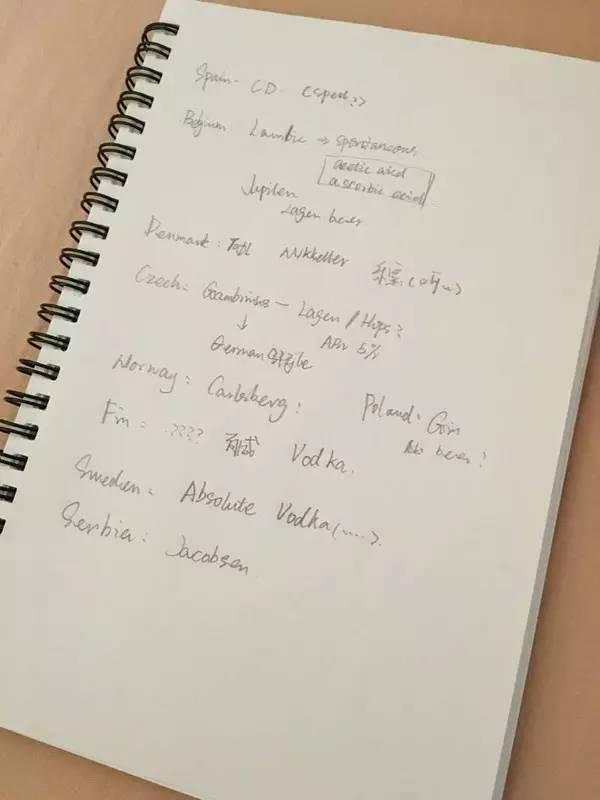 Spain - CD -
Belgium: Lambic → spontaneous
acetic acid
ascorbic acid
Jupiler
Lagen beer
Denmark: Mikkeller
Czech: Gambrinus — Lagen / Hops?
↓ ABV 5%
German
Norway: Carlsberg: Poland: Gin
Fin: ???? Vodka. No beer?
Sweden: Absolute Vodka(.....).
Serbia: Jacobsen